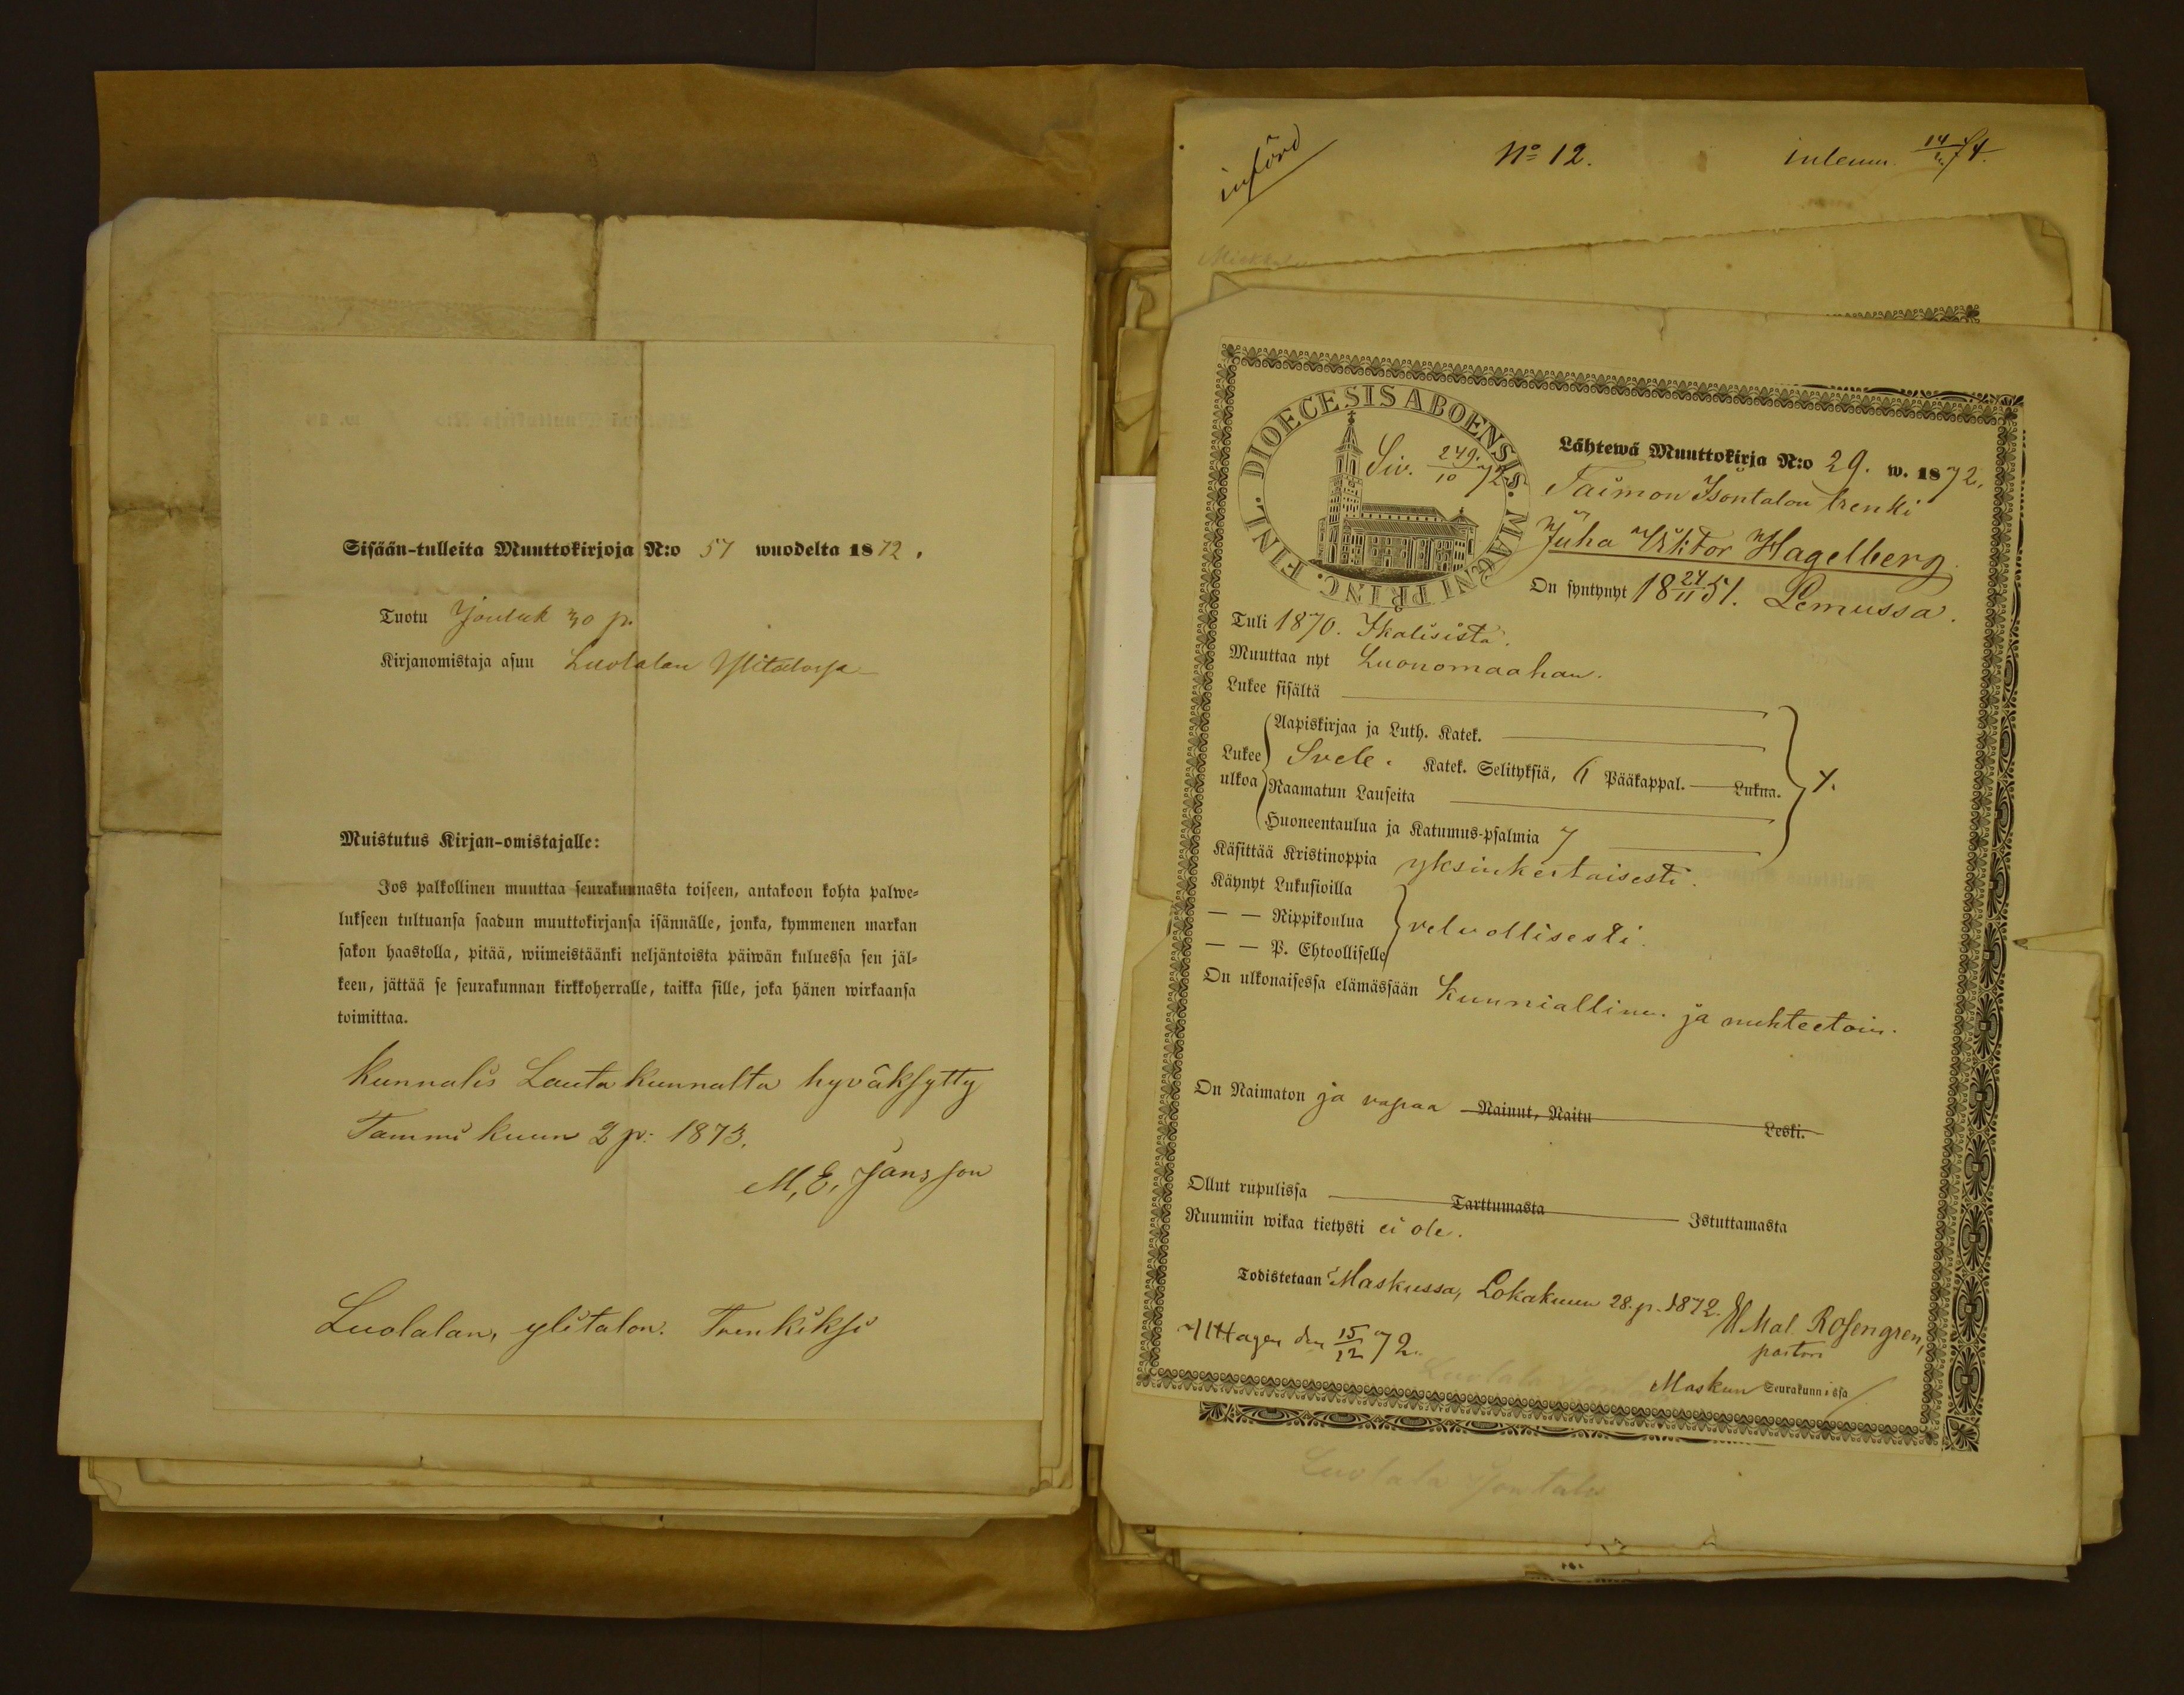 Sisään-tulleita Muuttokirjoja N:o 57 wuodelta 1872.
Tuotu Jouluk 30 p.
Kirjanomistaja asuu Luolalan Ylitalossa
Muistutus Kirjan-omistajalle:
Jos palkollinen muuttaa seurakunnasta toiseen, antakoon kohta palwe-
lukseen tultuansa saadun muuttokirjansa isännälle, jonka, kymmenen markan
sakon haastolla, pitää, wiimeistäänki neljäntoista päiwän kuluessa sen jäl-
keen, jättää se seurakunnan kirkkoherralle, taikka sille, joka hänen wirkaansa
toimittaa.
Kunnalis Lautakunnalta hyväksytty
Tammi kuun 2 p: 1873.
M. E. Jansson
Luolalan, ylitalon. Trenkiksi
införd
No 12.
DIOECESIS ABOENSIS. MAGNI PRINC. FINL.
Siv. 249. 10/72
Lähtewä Muuttokirja N:o 29. w. 1872.
Taimon Isontalon trenki
Juha Viktor Hagelberg.
On syntynyt 18 24/11 51. Lemussa.
Tuli 1870. Ikalisista.
Muuttaa nyt Luonomaahan.
Lukee sisältä
Aapiskirjaa ja Luth. Katek.
Lukee ulkoa Svele. Katek. Selityksiä, 6 Pääkappal. Lukua.
Raamatun Lauseita
Huoneentaulua ja Katumus-psalmia 7
Käsittää Kristinoppia yksinkertaisesti.
Käynyt Lukusioilla
— — Rippikoulua velvollisesti.
— — P. Ehtoolliselle
On ulkonaisessa elämässään Kunniallinen ja nuhteetoin.
On Naimaton ja vapaa Nainut, Naitu Leski.
Ollut rupulissa Tarttumasta Istuttamasta
Ruumiin wikaa tietysti ei ole.
Todistetaan Maskussa, Lokakuun 28. p. 1872. Mal. Rosengren,
pastori
Uttagen den 15/12 72.
Maskun Seurakunnissa
Luolala Isontalo